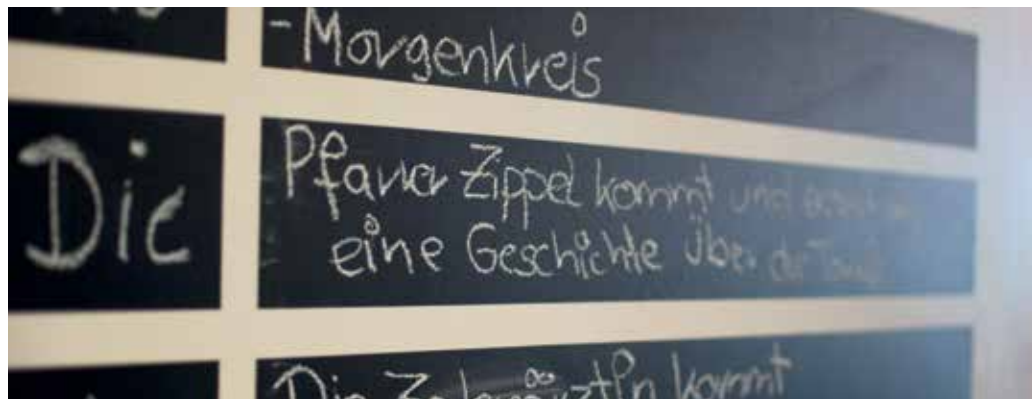 - Morgenkreis
Die
Pfarrer Zippel kommt und
eine Geschichte über die
Die Zahnärztin kommt